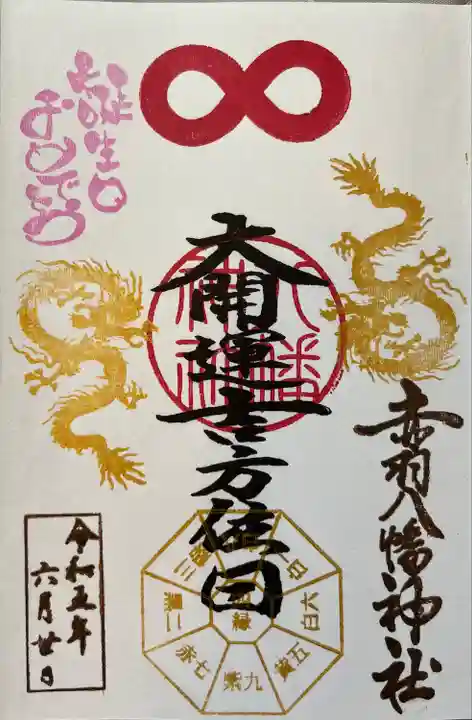 お誕生日
おめでとう
大開運吉方位回
赤羽八幡神社
八幡
神社
令和五年
六月廿日
三碧
二黒
七赤
九紫
五黄
六白
四緑